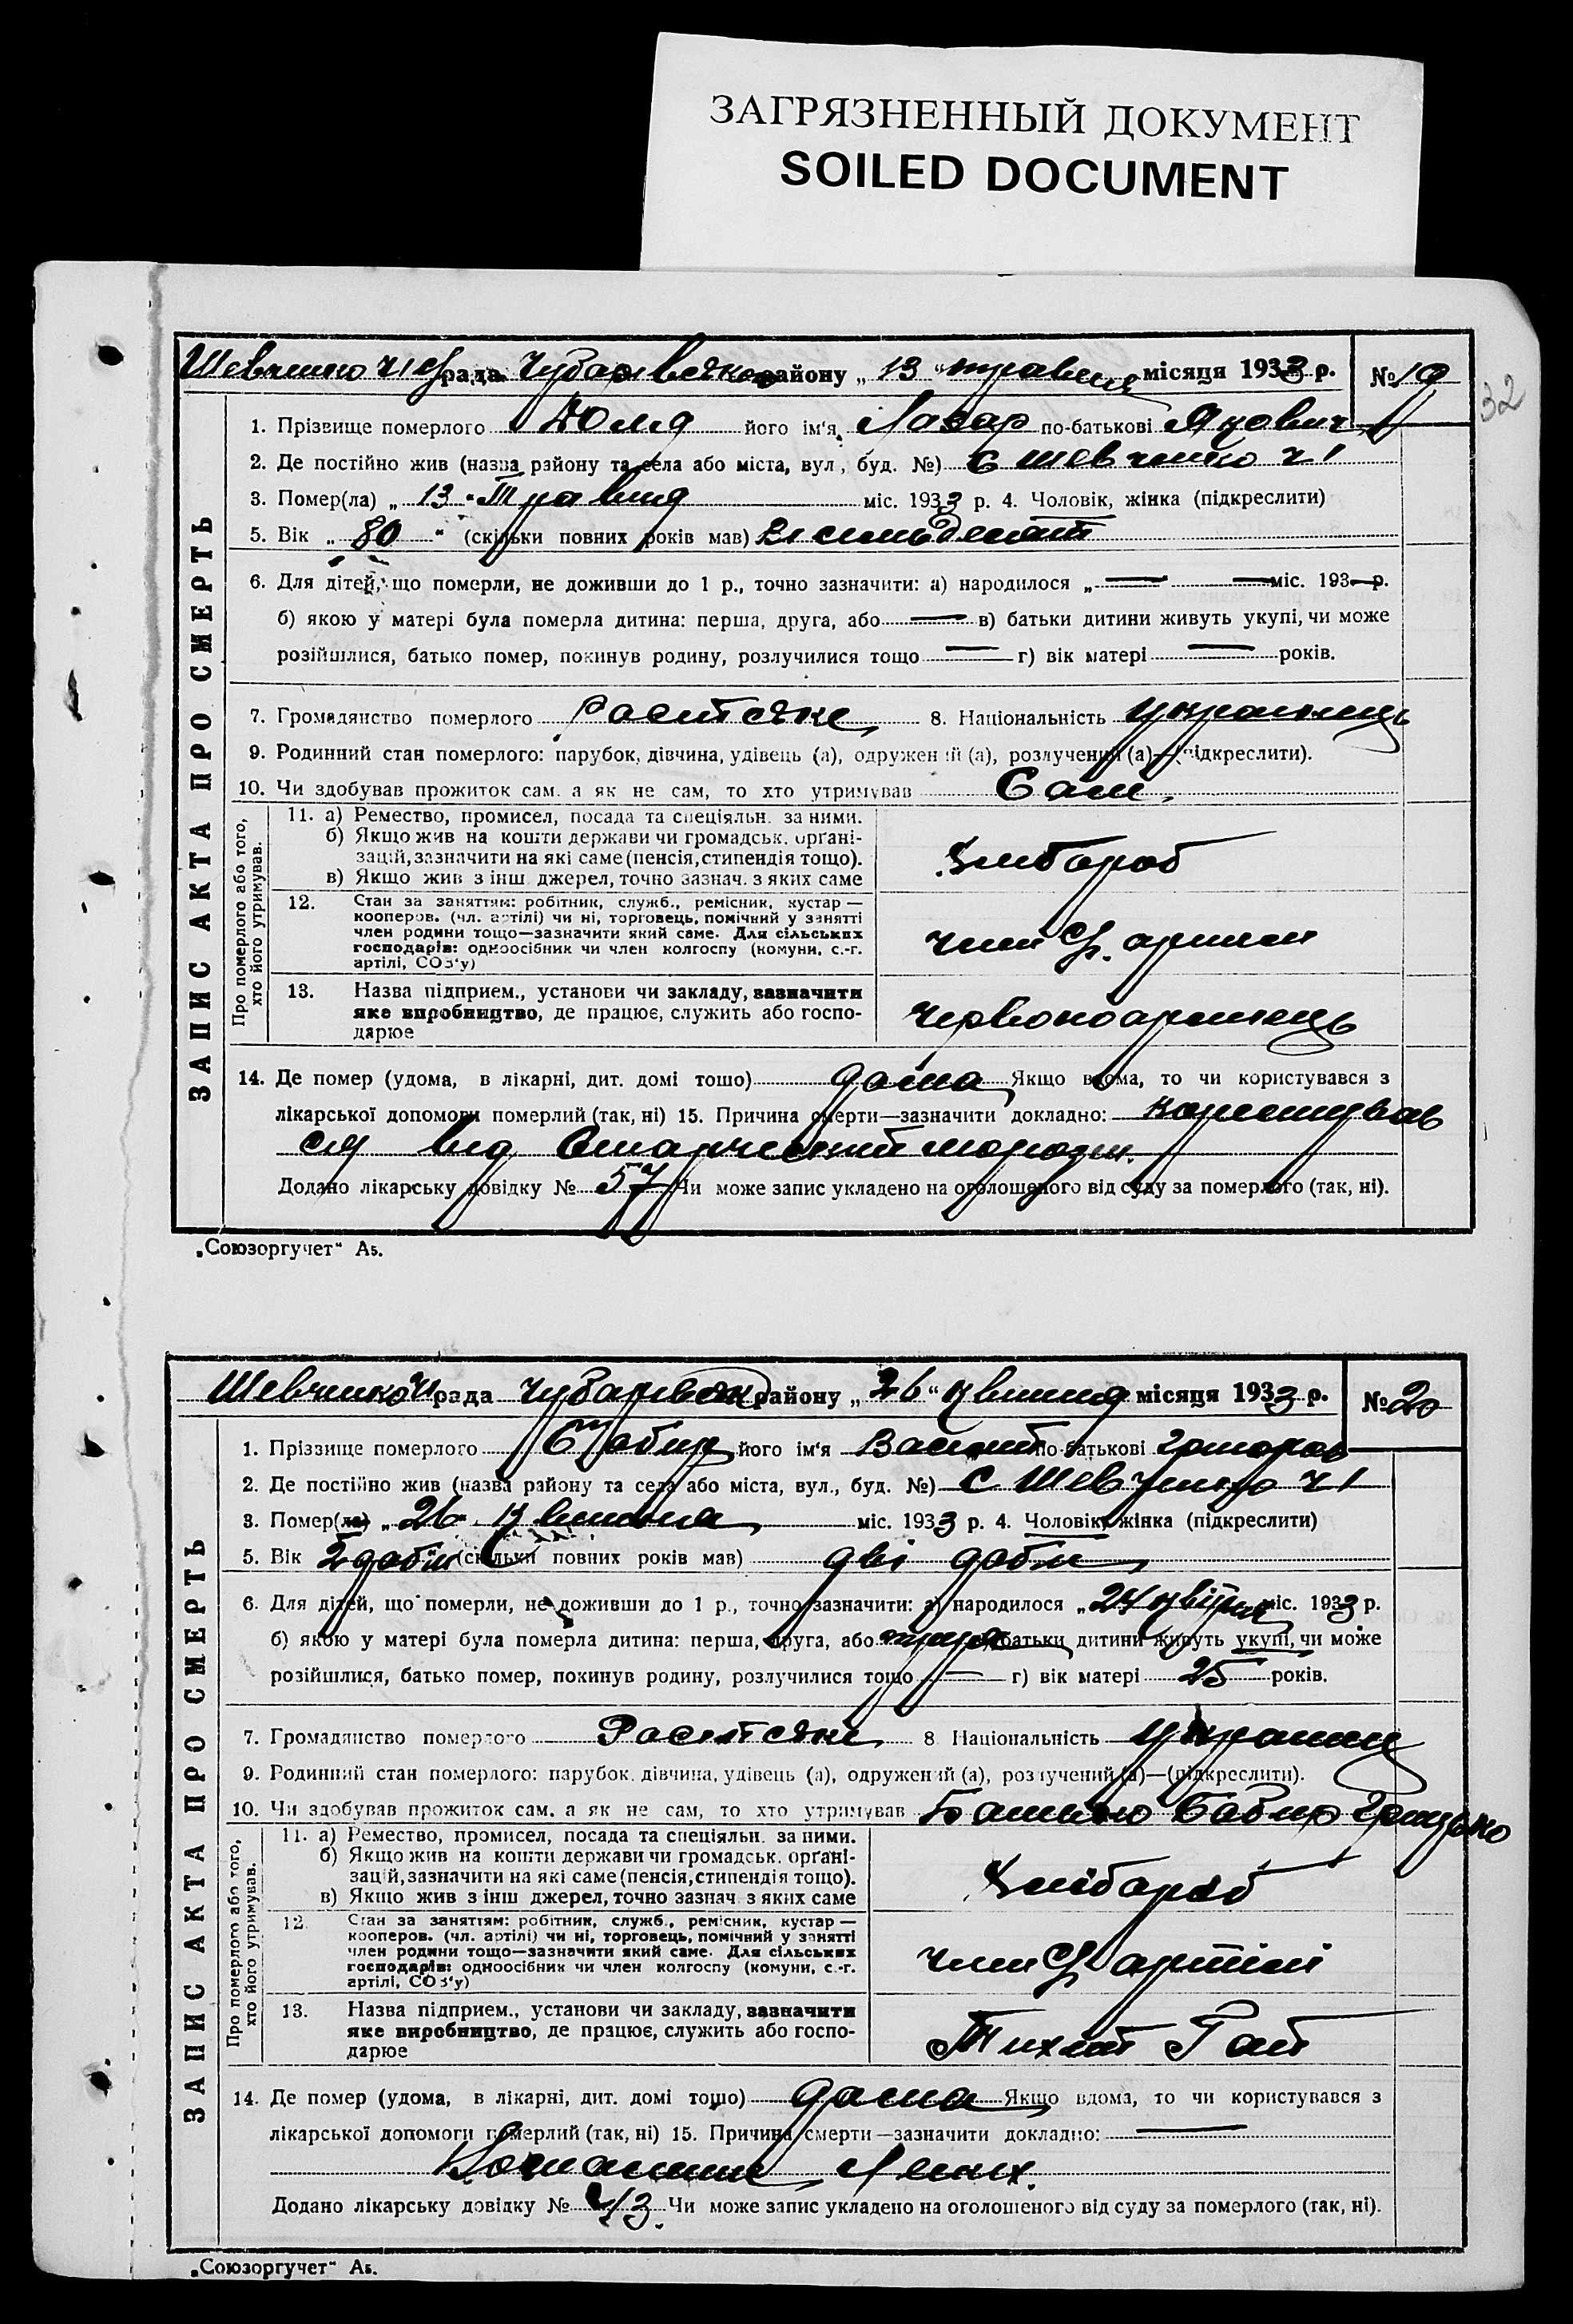 ЗАГРЯЗНЕННЫЙ ДОКУМЕНТ
SOILED DOCUMENT
32
ЗАПИС АКТА ПРО СМЕРТЬ
рада району „13“ травня місяця 1933 р. № 19
1. Прізвище померлого його ім'я Лазар по-батькові Якович
2. Де постійно жив (назва району та села або міста, вул, буд. №) с Шевченко ч1
3. Помер(ла) „13“ Травня міс. 1933 р. 4. Чоловік, жінка (підкреслити)
5. Вік „80“ (скільки повних років мав)
6. Для дітей, що померли, не доживши до 1 р., точно зазначити: а) народилося „— — міс. 193— р.
б) якою у матері була померла дитина: перша, друга, або — в) батьки дитини живуть укупі, чи може
розійшлися, батько помер, покинув родину, розлучилися тощо — г) вік матері — років.
7. Громадянство померлого 8. Національність Українець
9. Родинний стан померлого: парубок, дівчина, удівець (а), одружений (а), розлучений (а)—(підкреслити).
10. Чи здобував прожиток сам, а як не сам, то хто утримував Сам
Про померлого або того, хто його утримував.
11. а) Ремество, промисел, посада та спеціяльн. за ними.
б) Якщо жив на кошти держави чи громадськ. орґані-
зацій, зазначити на які саме (пенсія, стипендія тощо).
в) Якщо жив з інш джерел, точно зазнач. з яких саме
Хлібороб
12. Стан за заняттям: робітник, служб., ремісник, кустар —
кооперов. (чл. артілі) чи ні, торговець, помічний у занятті
член родини тощо—зазначити який саме. Для сільських
господарів: одноосібник чи член колгоспу (комуни, с.-г.
артілі, СОЗ'у)
член
13. Назва підприєм., установи чи закладу, зазначити
яке виробництво, де працює, служить або госпо-
дарює
Червоноармієць
14. Де помер (удома, в лікарні, дит. домі тошо) дома Якщо вдома, то чи користувався з
лікарської допомоги померлий (так, ні) 15. Причина смерти—зазначити докладно:
ся від
Додано лікарську довідку № 57 Чи може запис укладено на оголошеного від суду за померлого (так, ні).
„Союзоргучет“ А5.
ЗАПИС АКТА ПРО СМЕРТЬ
рада району „26“ квітня місяця 1933 р. № 20
1. Прізвище померлого його ім'я по-батькові
2. Де постійно жив (назва району та села або міста, вул., буд. №) с Шевченко ч1
3. Помер(ла) „26“ квітня міс. 1933 р. 4. Чоловік, жінка (підкреслити)
5. Вік 2 доби (скільки повних років мав) дві доби
6. Для дітей, що померли, не доживши до 1 р., точно зазначити: а) народилося „24 квітня міс. 1933 р.
б) якою у матері була померла дитина: перша, друга, або батьки дитини живуть укупі, чи може
розійшлися, батько помер, покинув родину, розлучилися тощо — г) вік матері 25 років.
7. Громадянство померлого 8 Національність
9. Родинний стан померлого: парубок, дівчина, удівець (а), одружений (а), розлучений (а)—(підкреслити).
10. Чи здобував прожиток сам, а як не сам, то хто утримував
Про померлого або того, хто його утримував.
11. а) Ремество, промисел, посада та спеціяльн. за ними.
б) Якщо жив на кошти держави чи громадськ. орґані-
зацій, зазначити на які саме (пенсія, стипендія тощо).
в) Якщо жив з інш джерел, точно зазнач з яких саме
Хлібороб
12. Стан за заняттям: робітник, служб., ремісник, кустар —
кооперов. (чл. артілі) чи ні, торговець, помічний у занятті
член родини тощо—зазначити який саме. Для сільських
господарів: одноосібник чи член колгоспу (комуни, с.-г.
артілі, СОЗ'у)
член артілі
13. Назва підприєм., установи чи закладу, зазначити
яке виробництво, де працює, служить або госпо-
дарює
Тихий Гай
14. Де помер (удома, в лікарні, дит. домі тошо) дома Якщо вдома, то чи користувався з
лікарської допомоги померлий (так, ні) 15. Причина смерти—зазначити докладно: —
Додано лікарську довідку № 43 Чи може запис укладено на оголошеного від суду за померлого (так, ні).
„Союзоргучет“ А5.